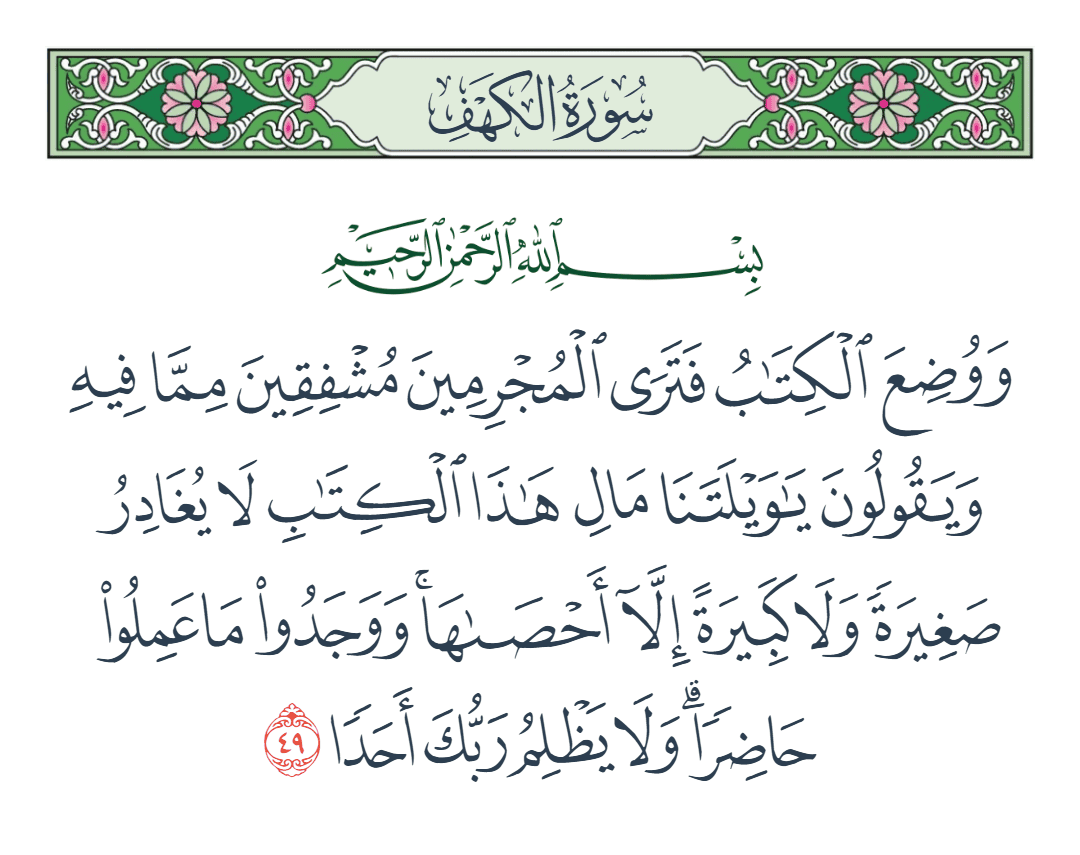 سُورَةُ الكَهْفِ
بِسْمِ ٱللَّهِ ٱلرَّحْمَٰنِ ٱلرَّحِيمِ
وَوُضِعَ ٱلْكِتَٰبُ فَتَرَى ٱلْمُجْرِمِينَ مُشْفِقِينَ مِمَّا فِيهِ
وَيَقُولُونَ يَٰوَيْلَتَنَا مَالِ هَٰذَا ٱلْكِتَٰبِ لَا يُغَادِرُ
صَغِيرَةً وَلَا كَبِيرَةً إِلَّآ أَحْصَىٰهَا ۚ وَوَجَدُوا۟ مَا عَمِلُوا۟
حَاضِرًا ۗ وَلَا يَظْلِمُ رَبُّكَ أَحَدًا ٤٩